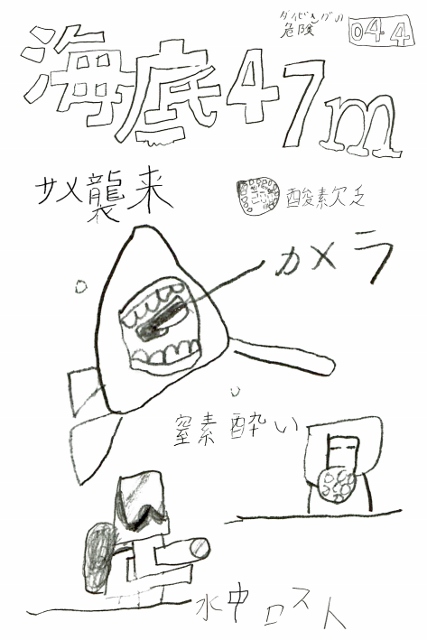 ダイビングの
危険
04-4
海底47m
サメ襲来
酸素欠乏
カメラ
窒素酔い
水中ロスト